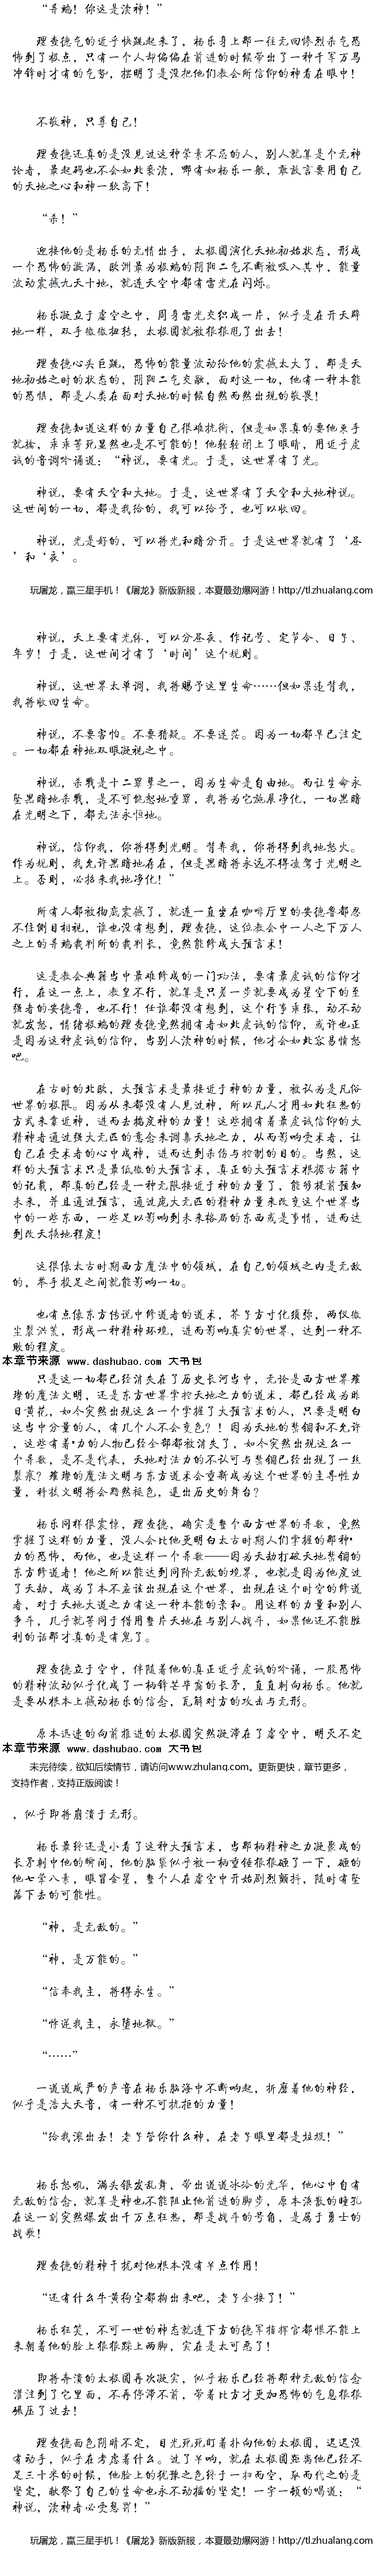 “异端！你这是渎神！”
理查德气的近乎快跳起来了，杨乐身上那一往无回惨烈杀气恐
怖到了极点，只有一个人却偏偏在前进的时候带出了一种千军万马
冲锋时才有的气势，摆明了是没把他们教会所信仰的神看在眼中！
不敬神，只尊自己！
理查德还真的是没见过这种荤素不忌的人，别人就算是个无神
论者，最起码也不会如此亵渎，哪有如杨乐一般，敢放言要用自己
的天地之心和神一较高下！
“杀！”
迎接他的是杨乐的无情出手，太极圆演化天地初始状态，形成
一个恐怖的漩涡，欧洲最为极端的阴阳二气不断被吸入其中，能量
波动震撼九天十地，就连天空中都有雷光在闪烁。
杨乐凝立于虚空之中，周身雷光交织成一片，似乎是在开天辟
地一样，双手微微扭转，太极圆就被狠狠甩了出去！
理查德心头巨跳，恐怖的能量波动给他的震撼太大了，那是天
地初始之时的状态的，阴阳二气交融，面对这一切，他有一种本能
的恐惧，那是人类在面对天地的时候自然而然出现的敬畏！
理查德知道这样的力量自己很难抗衡，但是如果真的要他束手
就擒，乖乖等死显然也是不可能的！他轻轻闭上了眼睛，用近乎虔
诚的音调吟诵道：“神说，要有光。于是，这世界有了光。
神说，要有天空和大地。于是，这世界有了天空和大地神说。
这世间的一切，都是我给的，我可以给予，也可以收回。
神说，光是好的，可以将光和暗分开。于是这世界就有了‘昼
’和‘夜’。
玩屠龙，赢三星手机！《屠龙》新版新服，本夏最劲爆网游！http://tl.zhualang.com
神说，天上要有光体，可以分昼夜、作记号、定节令、日子、
年岁！于是，这世间才有了‘时间’这个规则。
神说，这世界太单调，我将赐予这里生命……但如果违背我，
我将收回生命。
神说，不要害怕。不要猜疑。不要迷茫。因为一切都早已注定
。一切都在神地双眼凝视之中。
神说，杀戮是十二罪孽之一，因为生命是自由地。而让生命永
坠黑暗地杀戮，是不可饶恕地重罪，我将为它施展净化，一切黑暗
在光明之下，都无法永恒地。
神说，信仰我，你将得到光明。背弃我，你将得到我地怒火。
作为规则，我允许黑暗地存在，但是黑暗将永远不得凌驾于光明之
上。否则，必招来我地净化！”
所有人都被彻底震撼了，就连一直坐在咖啡厅里的安德鲁都忍
不住侧目相视，谁也没有想到，理查德，这位教会中一人之下万人
之上的异端裁判所的裁判长，竟然能修成大预言术！
这是教会典籍当中最难修成的一门功法，要有最虔诚的信仰才
行，在这一点上，教皇不行，就算是只差一步就要成为星空下的至
强者的安德鲁，也不行！任谁都没有想到，这个行事乖张，动不动
就发怒，情绪极端的理查德竟然拥有着如此虔诚的信仰，或许也正
是因为这种虔诚的信仰，当别人渎神的时候，他才会如此容易愤怒
吧。
在古时的北欧，大预言术是最接近于神的力量，被认为是凡俗
世界的极限。因为从来都没有人见过神，所以凡人才用如此狂热的
方式来靠近神，进而去揣度神的力量！这些拥有着最虔诚信仰的大
精神者通过强大无匹的意念来调集天地之力，从而影响受术者，让
自己在受术者的心中成神，进而达到杀伤与控制的目的。当然，这
样的大预言术只是最低微的大预言术，真正的大预言术根据古籍中
的记载，那真的已经是一种无限接近于神的力量了，能够提前预知
未来，并且通过预言，通过庞大无匹的精神力量来改变这个世界当
中的一些东西，一些足以影响到未来格局的东西或是事情，进而达
到改天换地程度！
这很像太古时期西方魔法中的领域，在自己的领域之内是无敌
的，举手投足之间就能影响一切。
也有点像东方传说中修道者的道术，芥子方寸化须弥，两仪微
尘裂洪荒，形成一种精神环境，进而影响真实的世界，达到一种不
败的程度。
本章节来源 www.dashubao.com 大书包
只是这一切都已经消失在了历史长河当中，无论是西方世界璀
璨的魔法文明，还是东方世界掌控天地之力的道术，都已经成为昨
日黄花，如今突然出现这么一个掌握了大预言术的人，只要是明白
这当中分量的人，有几个人不会变色？！因为天地的禁锢和不允许
，这些有着*力的人物已经全部都被消失了，如今突然出现这么一
个异数，是不是代表，天地对法力的不认可与禁锢已经出现了一丝
裂痕？璀璨的魔法文明与东方道术会重新成为这个世界的主导性力
量，科技文明将会黯然褪色，退出历史的舞台？
杨乐同样很震惊，理查德，确实是整个西方世界的异数，竟然
掌握了这样的力量，没人会比他更明白太古时期人们掌握的那种*
力的恐怖，而他，也是这样一个异数——因为天劫打破天地禁锢的
东方修道者！他之所以能达到同阶无敌的境界，也就是因为他度过
了天劫，成为了本不应该出现在这个世界，出现在这个时空的修道
者，对于天地大道之力有这一种本能的亲和。用这样的力量和别人
争斗，几乎就等同于借用整片天地在与别人战斗，如果他还不能胜
利的话那才真的是有鬼了。
理查德立于空中，伴随着他的真正近乎虔诚的吟诵，一股恐怖
的精神波动似乎化成了一柄锋芒毕露的长矛，直直刺向杨乐。他就
是要从根本上撼动杨乐的信念，瓦解对方的攻击与无形。
原本迅速的向前推进的太极圆突然凝滞在了虚空中，明灭不定
本章节来源 www.dashubao.com 大书包
未完待续，欲知后续情节，请访问www.zhulang.com。更新更快，章节更多，
支持作者，支持正版阅读！
，似乎即将崩溃于无形。
杨乐最终还是小看了这种大预言术，当那柄精神之力凝聚成的
长矛刺中他的瞬间，他的脑袋似乎被一柄重锤狠狠砸了一下，砸的
他七荤八素，眼冒金星，整个人在虚空中开始剧烈颤抖，随时有坠
落下去的可能性。
“神，是无敌的。”
“神，是万能的。”
“信奉我主，将得永生。”
“悖逆我主，永堕地狱。”
“……”
一道道威严的声音在杨乐脑海中不断响起，折磨着他的神经，
似乎是浩大天音，有一种不可抗拒的力量！
“给我滚出去！老子管你什么神，在老子眼里都是垃圾！”
杨乐怒吼，满头银发乱舞，带出道道冰冷的光华，他心中自有
无敌的信念，就算是神也不能阻止他前进的脚步，原本涣散的瞳孔
在这一刻突然爆发出千万点狂热，那是战斗的号角，是属于勇士的
战歌！
理查德的精神干扰对他根本没有半点作用！
“还有什么牛黄狗宝都掏出来吧，老子全接了！”
杨乐狂笑，不可一世的神态就连下方的德军指挥官都恨不能上
来朝着他的脸上狠狠踩上两脚，实在是太可恶了！
即将奔溃的太极圆再次凝实，似乎杨乐已经将那种无敌的信念
灌注到了它里面，不再停滞不前，带着比方才更加恐怖的气息狠狠
碾压了过去！
理查德面色阴晴不定，目光死死盯着扑向他的太极圆，迟迟没
有动手，似乎在考虑着什么。过了半晌，就在太极圆距离他已经不
足三十米的时候，他脸上的犹豫之色终于一扫而空，取而代之的是
坚定，献祭了自己的生命也永不动摇的坚定！一字一顿的喝道：“
神说，渎神者必受惩罚！”
玩屠龙，赢三星手机！《屠龙》新版新服，本夏最劲爆网游！http://tl.zhualang.com